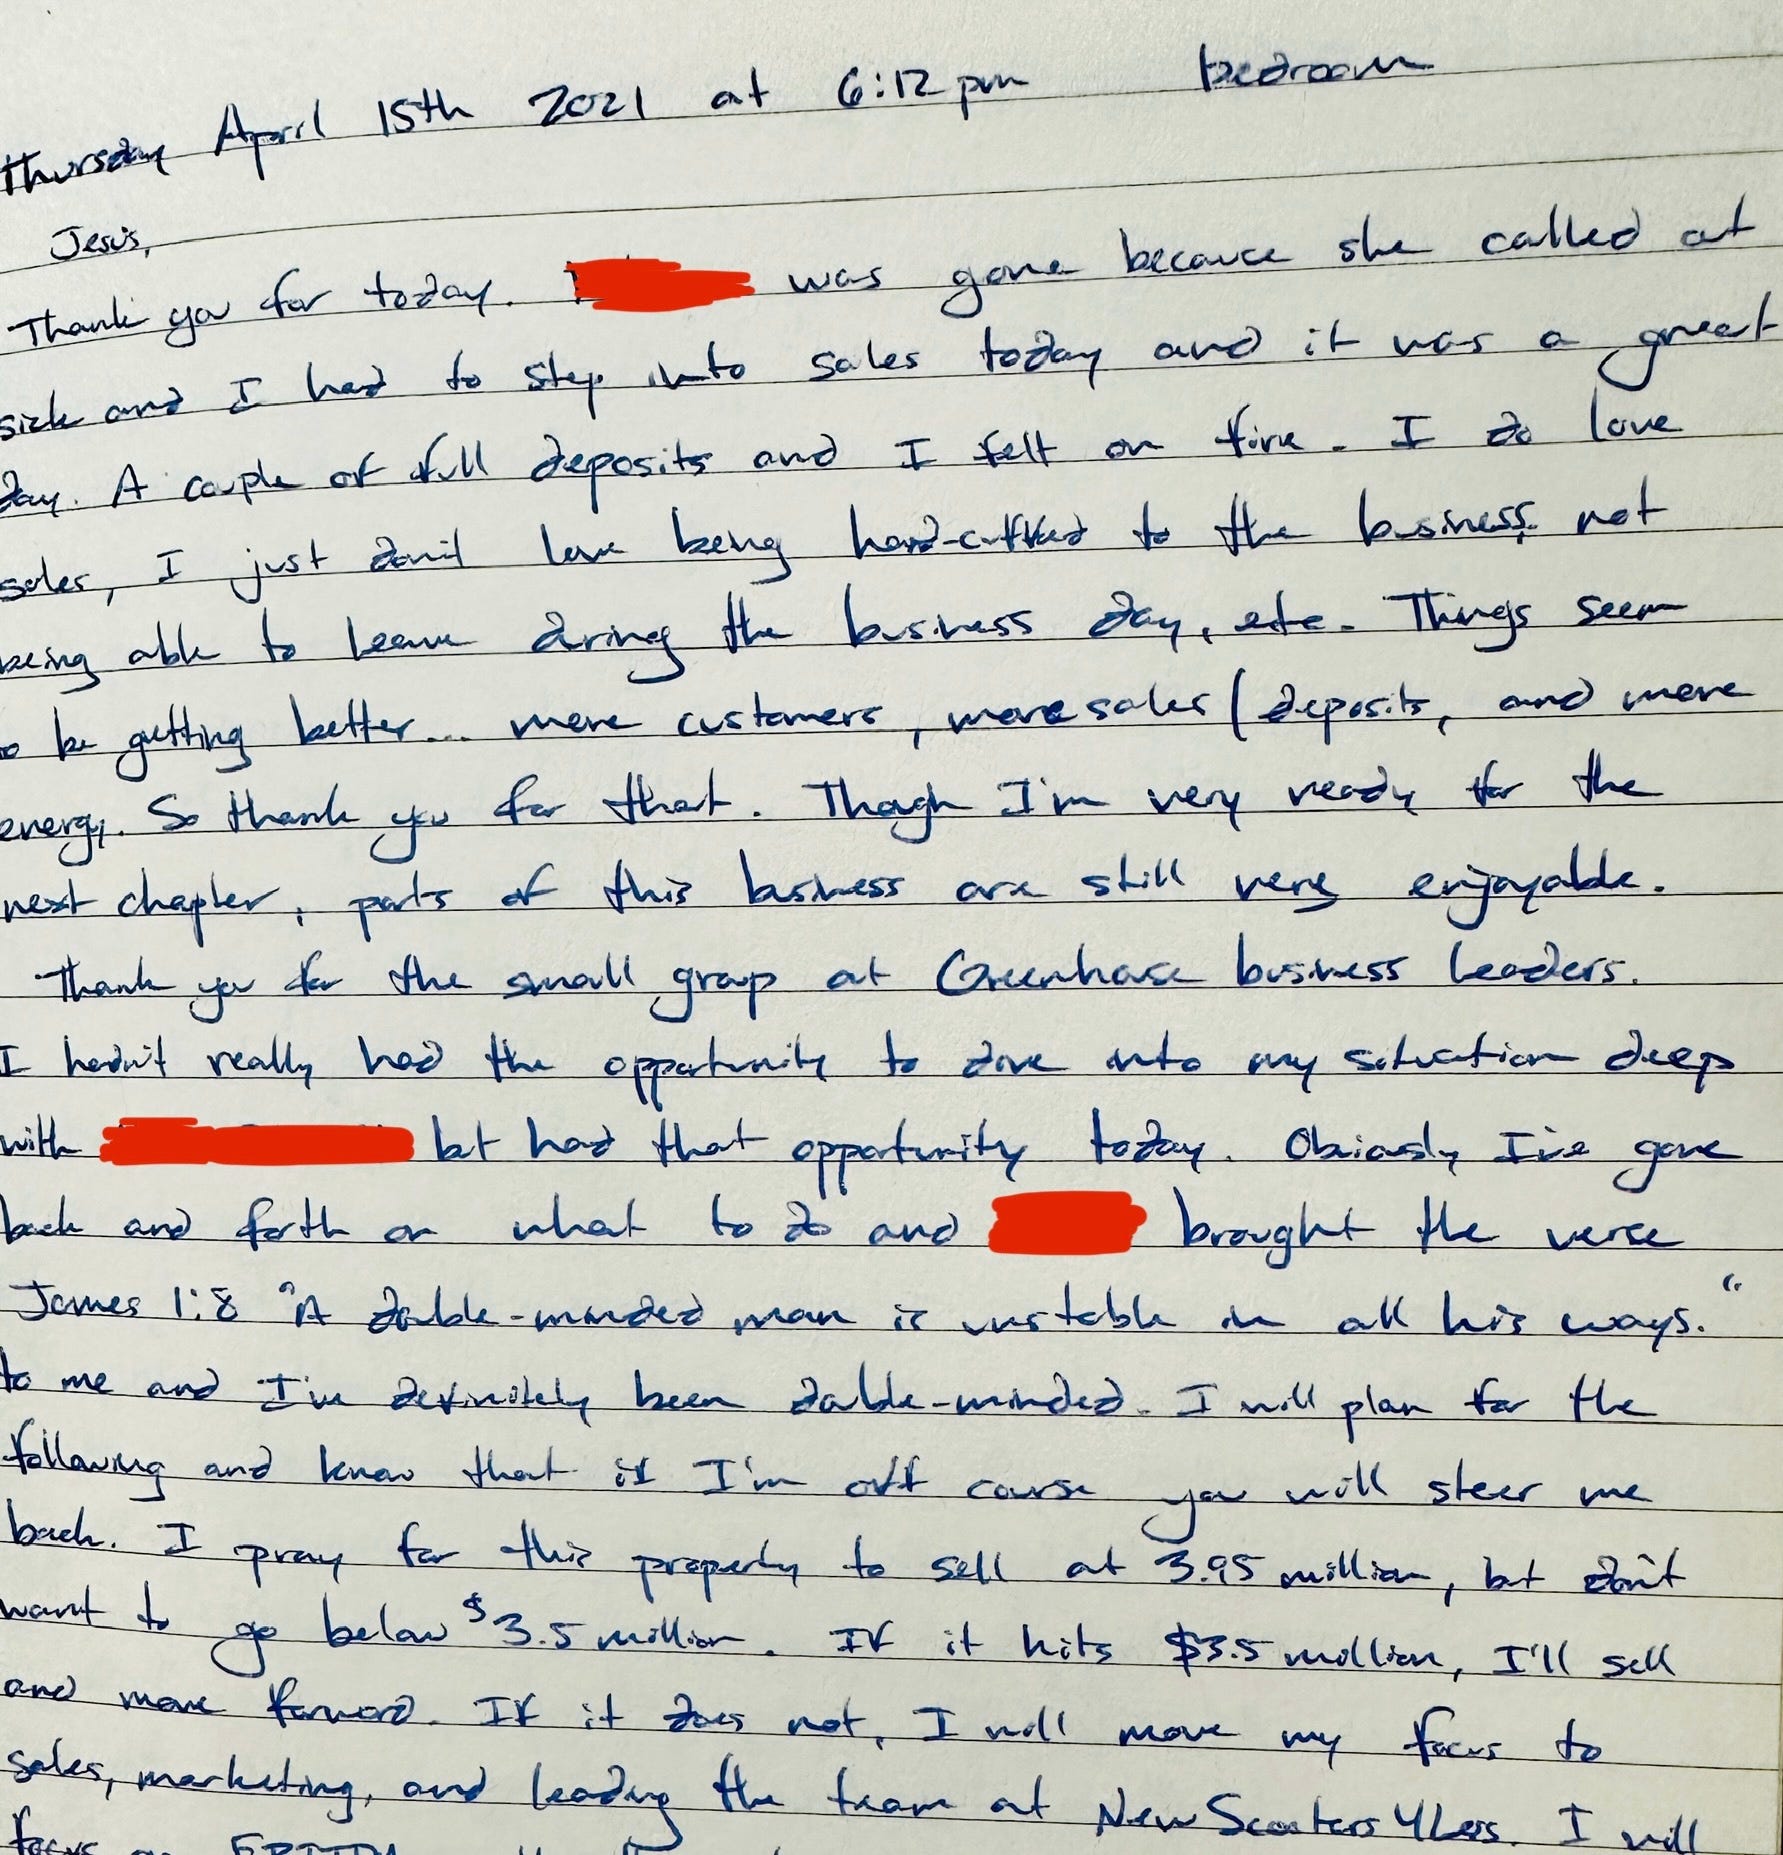 Thursday April 15th 2021 at 6:12 pm bedroom
Jesus,
Thank you for today. was gone because she called at
sick and I had to step into sales today and it was a great
day. A couple of full deposits and I felt on fire. I do love
sales, I just don't love being hand-cuffed to the business, not
being able to leave during the business day, etc. Things seem
to be getting better... more customers, more sales/deposits, and more
energy. So thank you for that. Though I'm very ready for the
next chapter, parts of this business are still very enjoyable.
Thank you for the small group at Greenhouse business leaders.
I hadn't really had the opportunity to dive into my situation deep
with but had that opportunity today. Obviously I've gone
back and forth on what to do and brought the verse
James 1:8 "A double-minded man is unstable in all his ways."
to me and I've definitely been double-minded. I will plan for the
following and know that if I'm off course you will steer me
back. I pray for this property to sell at 3.95 million, but don't
want to go below $3.5 million. If it hits $3.5 million, I'll sell
and move forward. If it does not, I will move my focus to
sales, marketing, and leading the team at New Scooters 4 Less. I will
focus on EBITDA